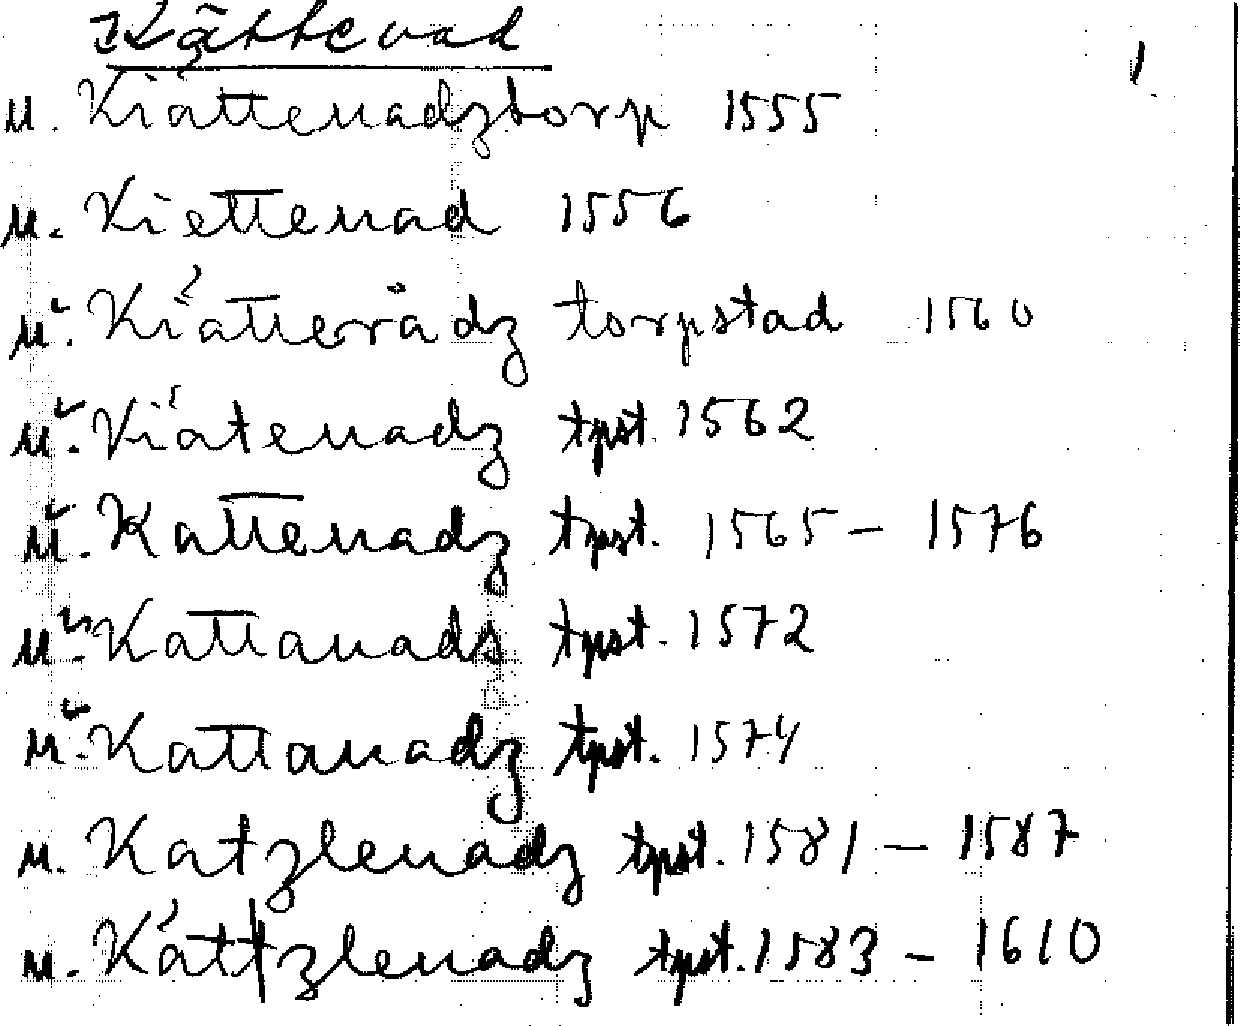 Kättevad
1
u. Kiätteuadztorp 1555
u. Kietteuad 1556
u. Kiätterådz torpstad 1560
u. Kiäteuadz tpst. 1562
u. Katteuadz tpst. 1565 – 1576
u. Kattauads tpst. 1572
u. Kattauadz tpst. 1574
u. Katzleuadz tpst. 1581 – 1587
u. Kättzleuadz tpst. 1583 – 1610